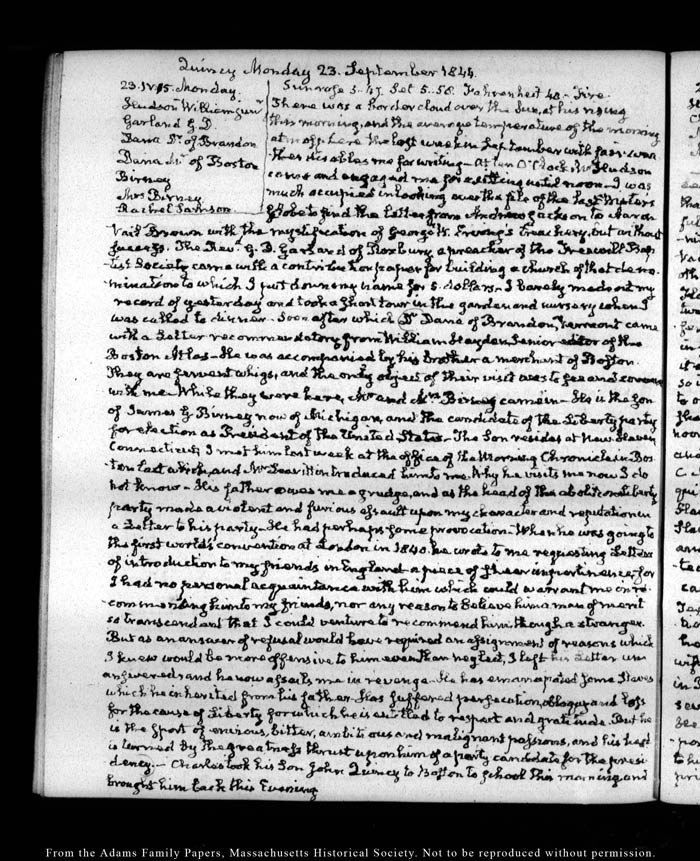 Quincy Monday 23. September 1844.
23. IV:15. Monday.
Hudson William
Garland G. D.
Dana Dr. of Brandon
Dana Mr. of Boston
Birney
Mrs Birney
Rachel Samson.
Sun rose 5-47. Set 5-58. Fahrenheit 48 - Fire.
There was a border cloud over the Sun, at his rising
this morning, and the average temperature of the morning
atmosphere the last week in September with fair wea-
ther disables me for writing - At ten O'Clock Mr Hudson
came and engaged me for a sitting until noon - I was
much occupied in looking over the file of the last Winters
Globe to find the letter from Andrew Jackson to Aaron
Vail Brown with the mystification of George W. Erving's treachery, but without
success. The Revd. G. D. Garland of Roxbury a preacher of the Freewill Bap-
tist Society came with a contribution paper for building a church of that deno-
mination to which I put down my name for 5 dollars - I barely made out my
record of yesterday and took a short tour in the garden and nursery when I
was called to dinner - Soon after which Dr. Dana of Brandon, Vermont came
with a Letter recommendatory from William Hayden, Senior editor of the
Boston Atlas - He was accompanied by his brother a merchant of Boston.
They are fervent whigs, and the only object of their visit was to see and converse
with me - While they were here, Mr and Mrs Birney came in - He is the Son
of James G. Birney now of Michigan, and the candidate of the Liberty party
for election as President of the United States - The Son resides at New Haven
Connecticut; I met him last week at the office of the Morning Chronicle in Bos-
ton last week, and Mr Leavitt introduced him to me. Why he visits me now I do
not know - His father owes me a grudge, and as the head of the abolition liberty
party made a violent and furious assault upon my character and reputation in
a Letter to his party - He had perhaps some provocation - When he was going to
the first world's convention at London in 1840. he wrote to me requesting Letters
of introduction to my friends in England - a piece of sheer impertinence; for
I had no personal acquaintance with him which could warrant me in re-
commending him to my friends, nor any reason to believe him a man of merit
so transcendant that I could venture to recommend him though a stranger.
But as an answer of refusal would have required an assignment of reasons which
I knew would be more offensive to him even than neglect, I left his Letter un
answered and he now assails me in revenge - He has emancipated some Slaves
which he inherited from his father - Has suffered persecution, obloquy and loss
for the cause of Liberty for which he is entitled to respect and gratitude. But he
is the sport of envious, bitter, ambitious and malignant passions, and his head
is turned by the greatness thrust upon him of a party candidate for the presi-
dency. - Charles took his Son John Quincy to Boston to school this morning, and
brought him back this Evening
From the Adams Family Papers, Massachusetts Historical Society. Not to be reproduced without permission.